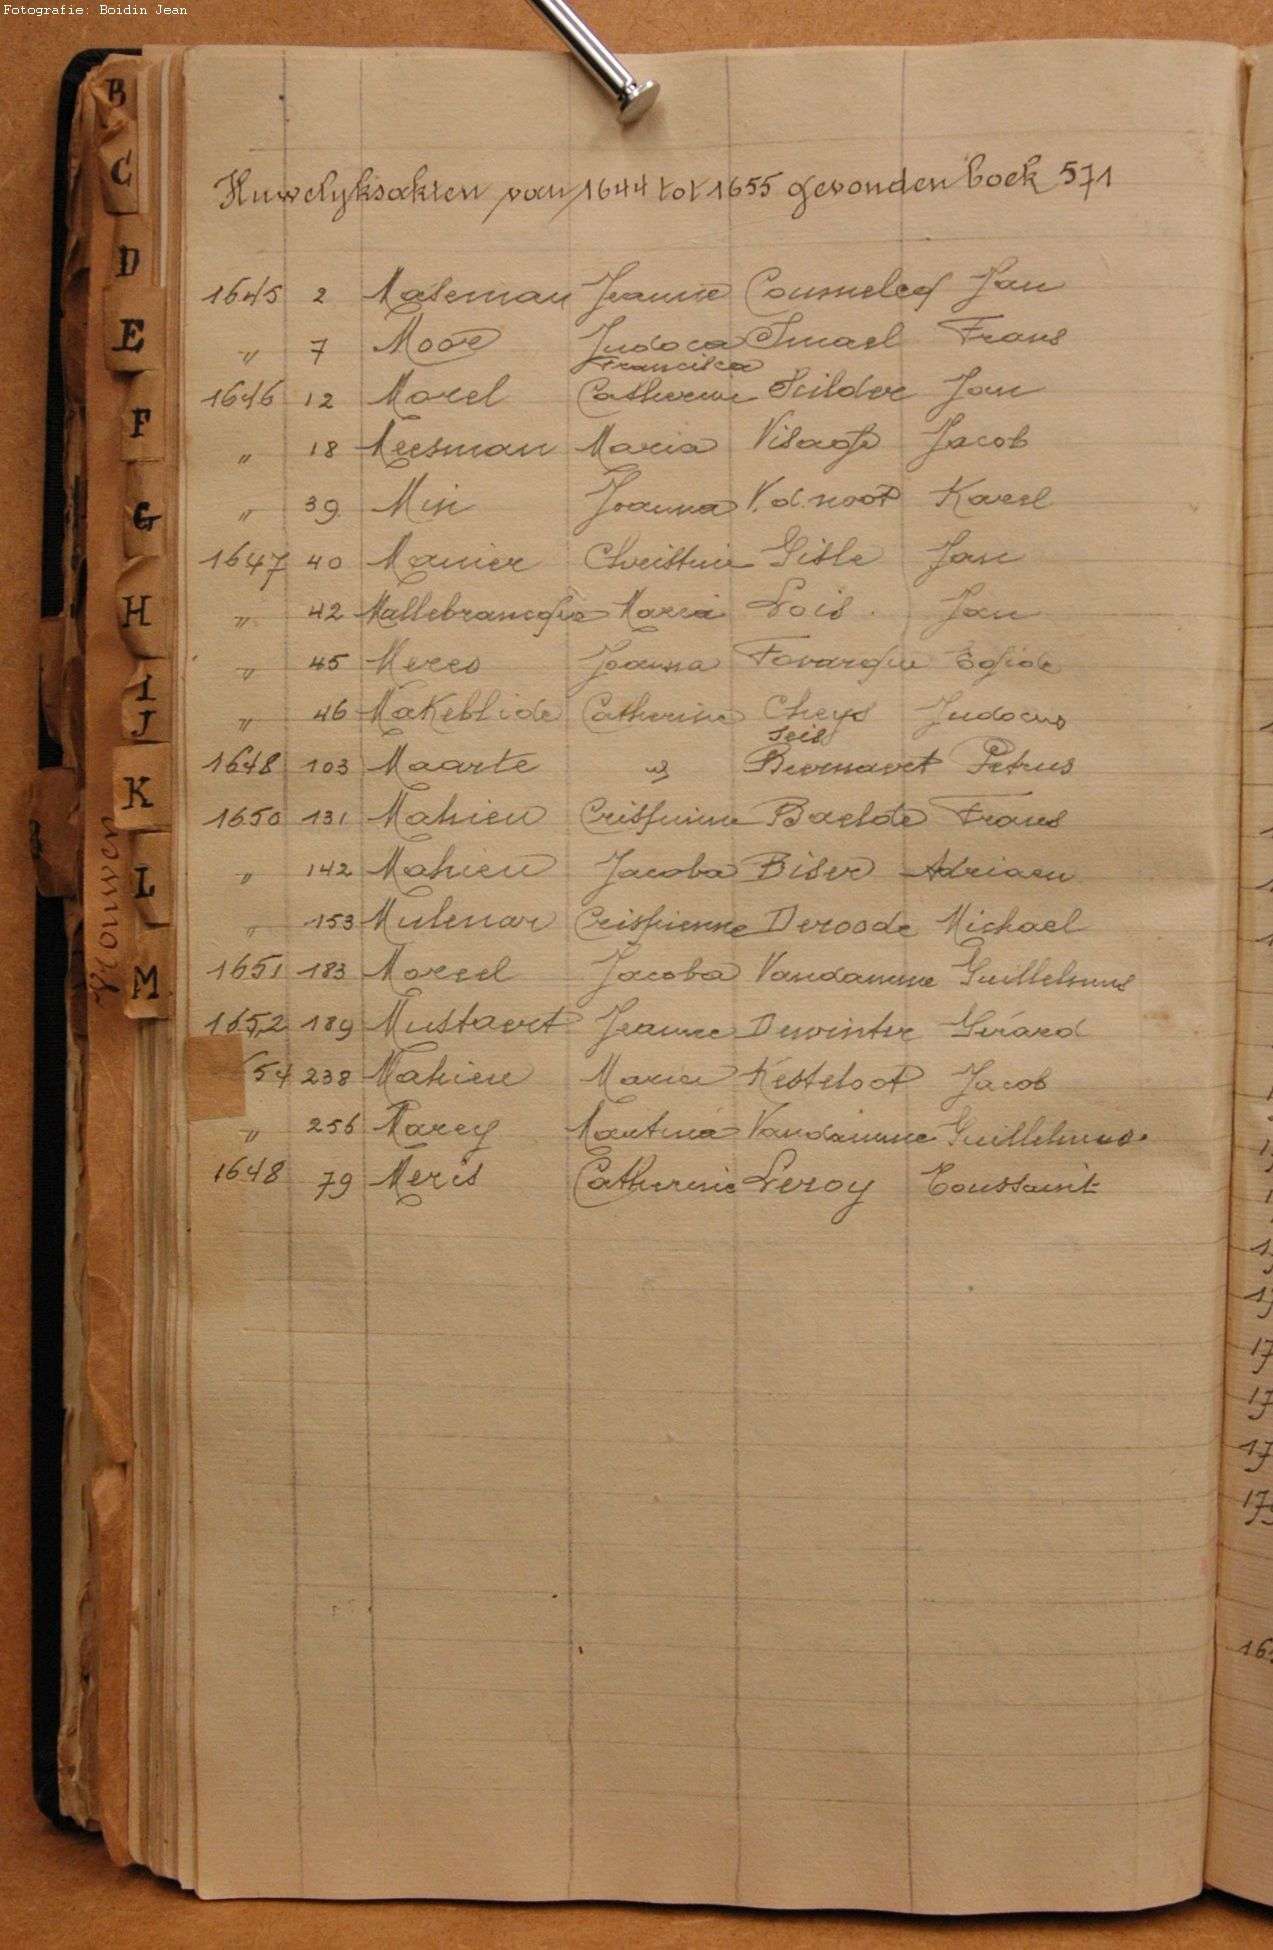 Fotografie: Boidin Jean
Huwelyksakten van 1644 tot 1655 gevonden boek 571
1645 2 Maseman Jeanne Jan
" 7 Moor Judoca Smael Frans
Francisca
1646 12 Morel Catherine Scilder Jan
" 18 Meesman Maria Visage Jacob
" 39 Min Joanna V.d.noot Karel
1647 40 Manier Christine Gisle Jan
" 42 Mallebrancque Maria Lois Jan
" 45 Meres Joanna Fovarque Egide
" 46 MaKeblide Catherine Cheys Judocus
Seis
1648 103 Maarte " Beernaert Petrus
1650 131 Mahieu Crispinne Baelde Frans
" 142 Mahieu Jacoba Biser Adriaen
" 153 Mulenar Crispienne Deroode Michael
1651 183 Moreel Jacoba Vandamme Guillelmus
1652 189 Mustaert Jeanne Dewinter Gerard
54 238 Mahieu Maria Kesteloot Jacob
" 256 Marey Martina Vandamme Guillelmus
1648 79 Meris Catherine Leroy Toussaint
B
C
D
E
F
G
H
I
J
K
L
M
Vrouwen